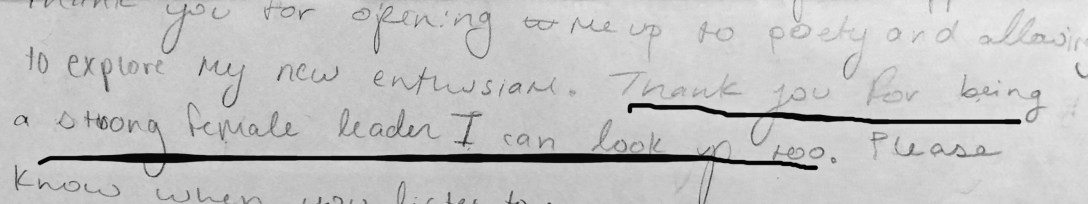 Thank you for opening me up to poety and allowing
to explore my new enthusiam. Thank you for being
a strong female leader I can look up too. Please
know when you listen to